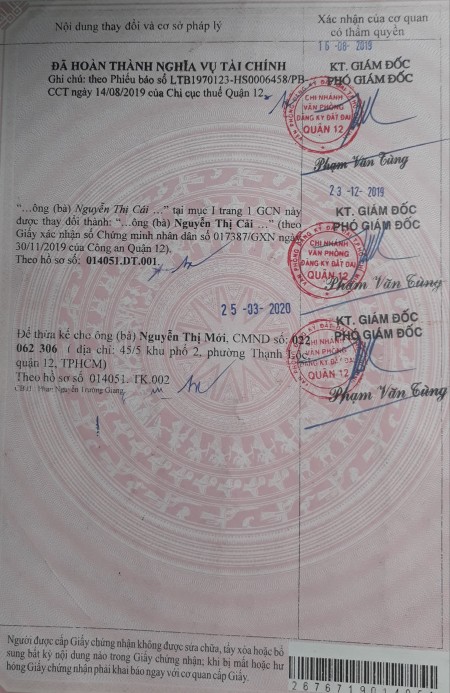 Nội dung thay đổi và cơ sở pháp lý
Xác nhận của cơ quan
có thẩm quyền
16-08-2019
ĐÃ HOÀN THÀNH NGHĨA VỤ TÀI CHÍNH
Ghi chú: theo Phiếu báo số LTB1970123-HS0006458/PB-
CCT ngày 14/08/2019 của Chi cục thuế Quận 12.
KT. GIÁM ĐỐC
PHÓ GIÁM ĐỐC
CHI NHÁNH
VĂN PHÒNG
ĐĂNG KÝ ĐẤT ĐAI
QUẬN 12
Phạm Văn Tùng
23-12-2019
"...ông (bà) Nguyễn Thị Cái ..." tại mục I trang 1 GCN này
được thay đổi thành: "...ông (bà) Nguyễn Thị Cãi ..." (theo
Giấy xác nhận số Chứng minh nhân dân số 017387/GXN ngày
30/11/2019 của Công an Quận 12).
Theo hồ sơ số: 014051.DT.001
KT. GIÁM ĐỐC
PHÓ GIÁM ĐỐC
CHI NHÁNH
VĂN PHÒNG
ĐĂNG KÝ ĐẤT ĐAI
QUẬN 12
Phạm Văn Tùng
25-03-2020
Để thừa kế cho ông (bà) Nguyễn Thị Mới, CMND số: 022
062 306 ( địa chỉ: 45/5 khu phố 2, phường Thạnh Lộc,
quận 12, TPHCM)
Theo hồ sơ số 014051.TK.002
KT. GIÁM ĐỐC
PHÓ GIÁM ĐỐC
CHI NHÁNH
VĂN PHÒNG
ĐĂNG KÝ ĐẤT ĐAI
QUẬN 12
Phạm Văn Tùng
Người được cấp Giấy chứng nhận không được sửa chữa, tẩy xóa hoặc bổ
sung bất kỳ nội dung nào trong Giấy chứng nhận; khi bị mất hoặc hư
hỏng Giấy chứng nhận phải khai báo ngay với cơ quan cấp Giấy.